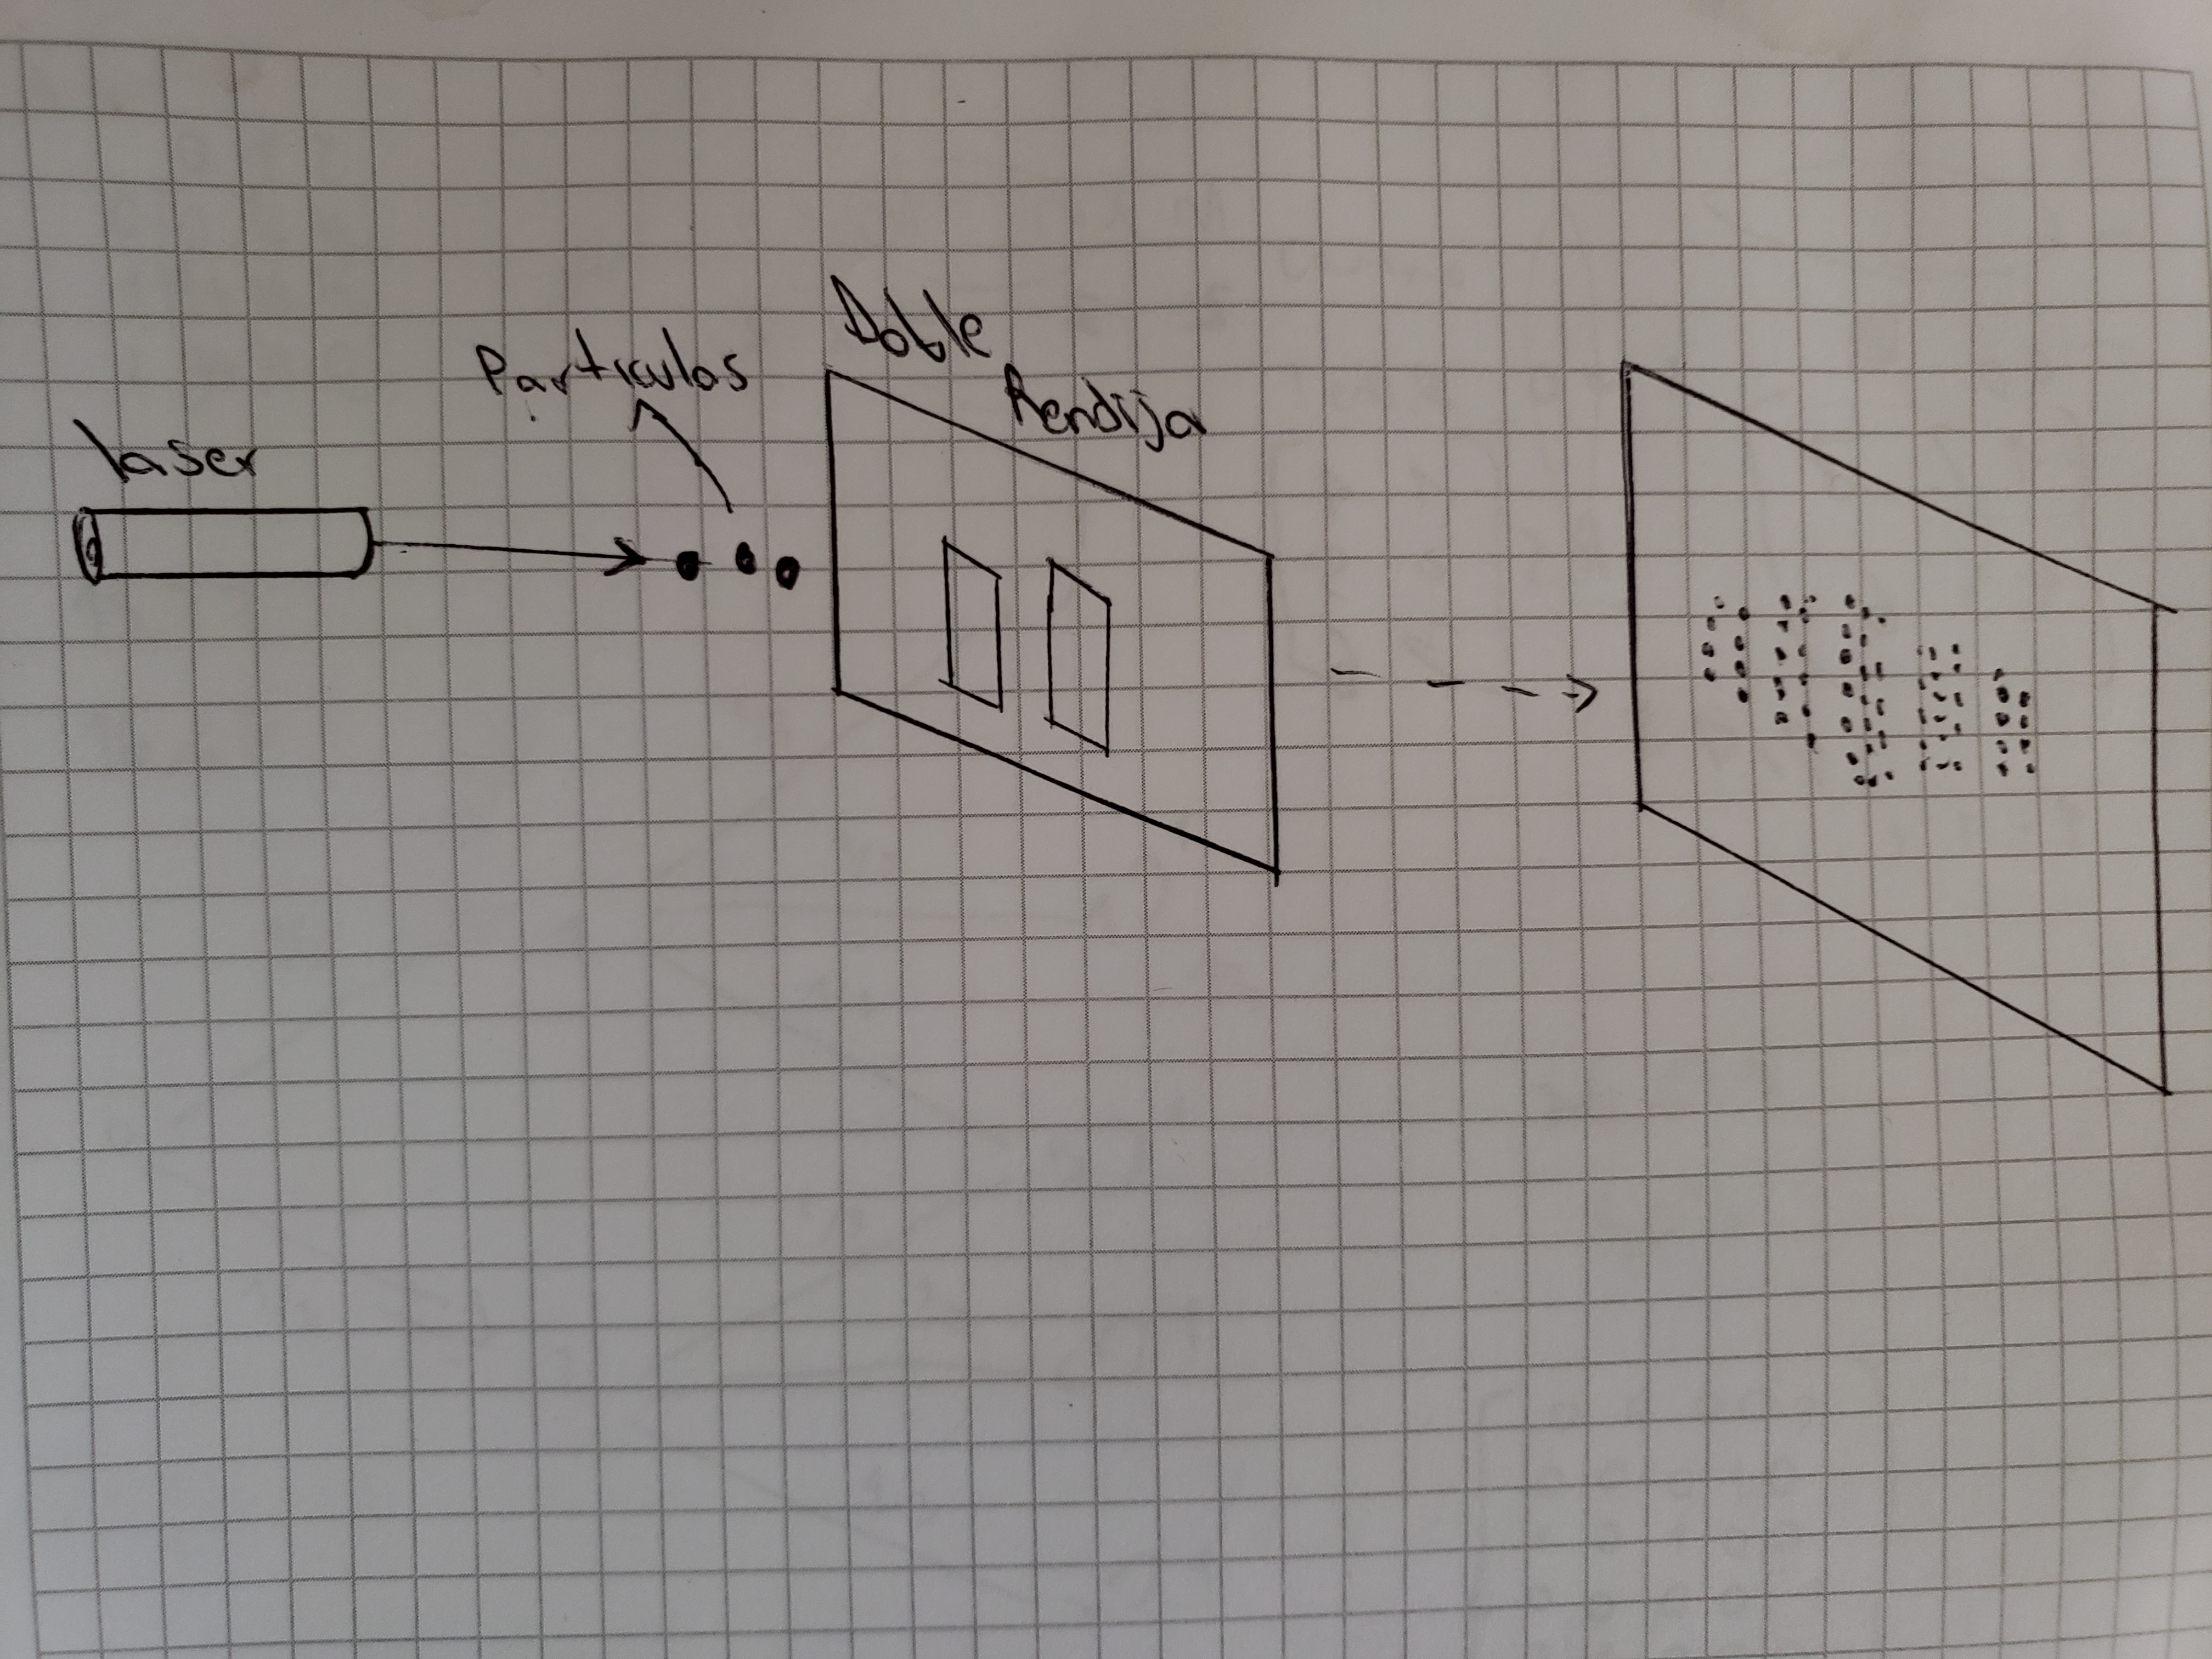 laser
particulas
Doble
Rendija